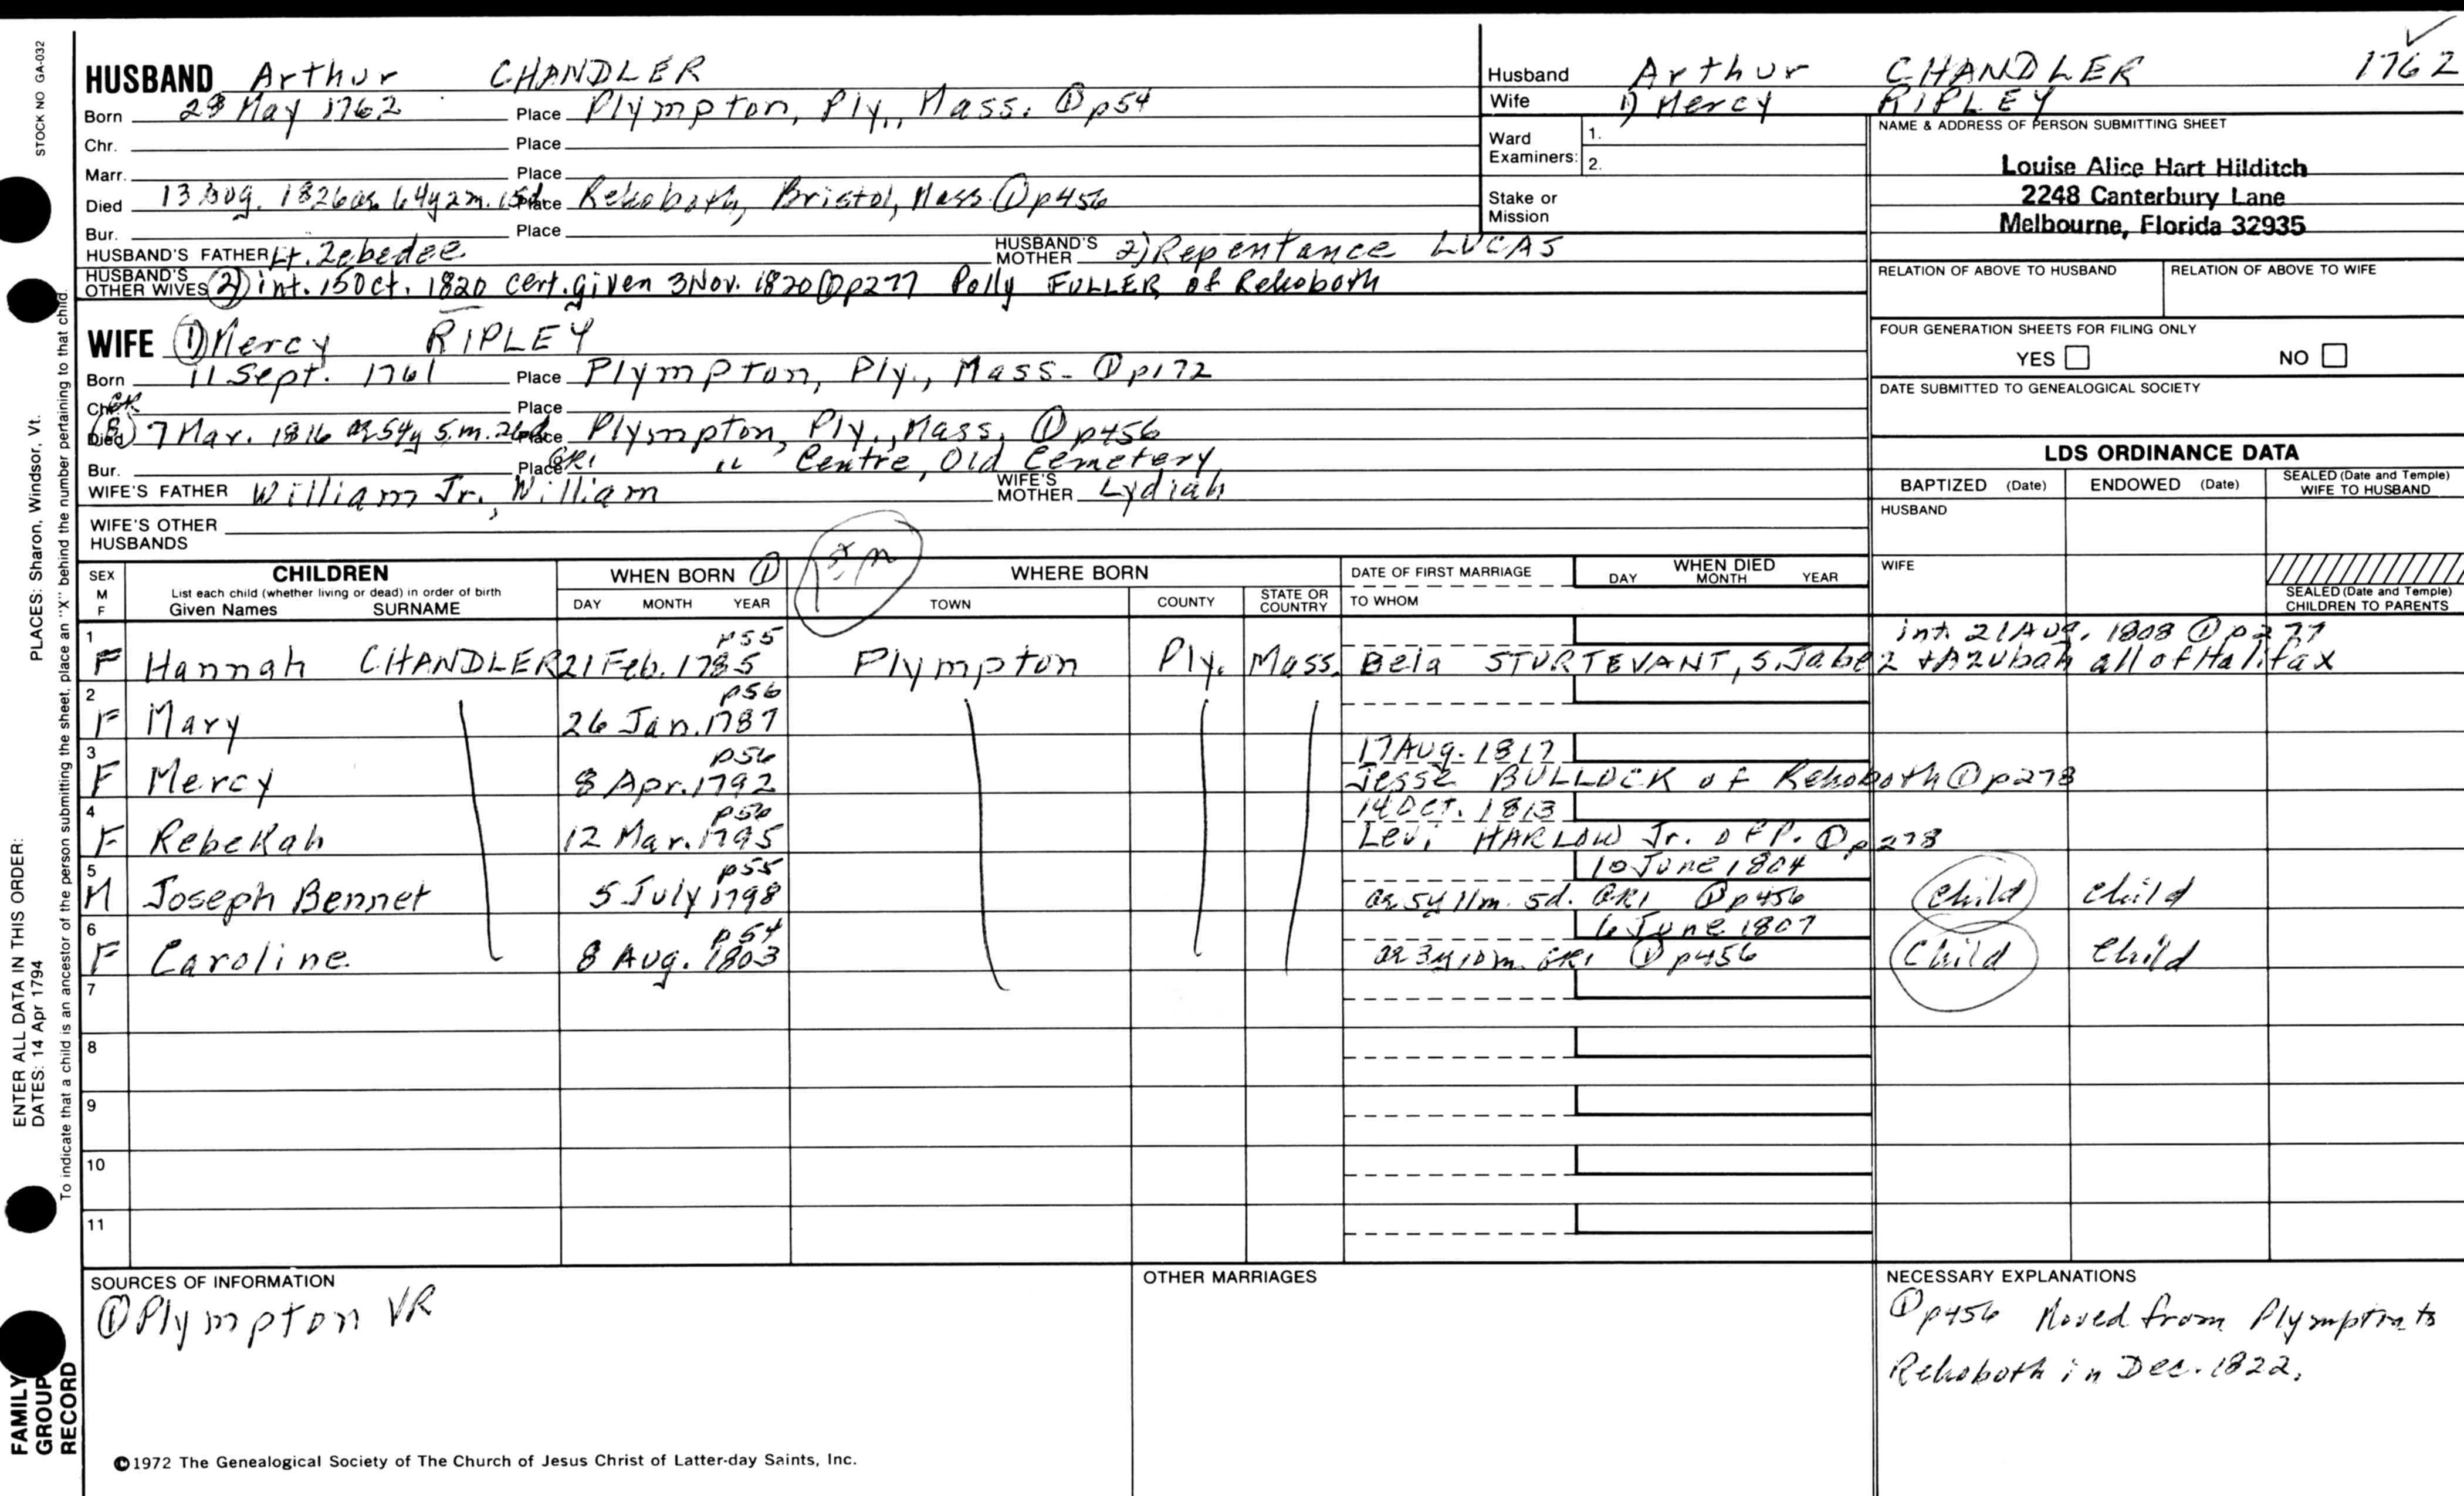 HUSBAND Arthur CHANDLER
Born 28 May 1762 Place Plympton, Ply., Mass. ① p54
Chr. Place
Marr. Place
Died 13 Aug. 1826 ae 64y 2m. 15d. Place Rehoboth, Bristol, Mass. ① p456
Bur. Place
HUSBAND'S FATHER Lt. Zebedee HUSBAND'S MOTHER 2) Repentance LUCAS
HUSBAND'S OTHER WIVES ② int. 15 Oct. 1820 cert. given 3 Nov. 1820 ① p277 Polly FULLER of Rehoboth
WIFE ① Mercy RIPLEY
Born 11 Sept. 1761 Place Plympton, Ply., Mass. ① p172
Chr. Place
Died 7 Mar. 1816 ae 54y 5.m. 26d. Place Plympton, Ply., Mass. ① p456
Bur. Place GR1 " Centre, Old Cemetery
WIFE'S FATHER William Jr., William WIFE'S MOTHER Lydiah
WIFE'S OTHER HUSBANDS
Husband Arthur CHANDLER 1762
Wife 1) Mercy RIPLEY
Ward Examiners: 1.
2.
Stake or Mission
NAME & ADDRESS OF PERSON SUBMITTING SHEET
Louise Alice Hart Hilditch
2248 Canterbury Lane
Melbourne, Florida 32935
RELATION OF ABOVE TO HUSBAND RELATION OF ABOVE TO WIFE
FOUR GENERATION SHEETS FOR FILING ONLY
YES NO
DATE SUBMITTED TO GENEALOGICAL SOCIETY
LDS ORDINANCE DATA
BAPTIZED (Date) ENDOWED (Date) SEALED (Date and Temple) WIFE TO HUSBAND
HUSBAND
WIFE
SEALED (Date and Temple) CHILDREN TO PARENTS
SEX M F CHILDREN WHEN BORN ① WHERE BORN DATE OF FIRST MARRIAGE WHEN DIED
List each child (whether living or dead) in order of birth
Given Names SURNAME DAY MONTH YEAR TOWN COUNTY STATE OR COUNTRY TO WHOM DAY MONTH YEAR
1 p55 int. 21 Aug. 1808 ① p277
F Hannah CHANDLER 21 Feb. 1785 Plympton Ply. Mass. Bela STURTEVANT, s. Jabez + Azubah all of Halifax
2 p56
F Mary 26 Jan. 1787
3 p56 17 Aug. 1817
F Mercy 8 Apr. 1792 Jesse BULLOCK of Rehoboth ① p278
4 p56 14 Oct. 1813
F Rebekah 12 Mar. 1795 Levi HARLOW Jr. of P. ① p278
5 p55 10 June 1804
M Joseph Bennet 5 July 1798 ae 5y 11m. 5d. GR1 ① p456 Child Child
6 p54 6 June 1807
F Caroline 8 Aug. 1803 ae 3y 10m. GR1 ① p456 Child Child
7
8
9
10
11
SOURCES OF INFORMATION
① Plympton VR
OTHER MARRIAGES
NECESSARY EXPLANATIONS
① p456 Moved from Plympton to
Rehoboth in Dec. 1822.
©1972 The Genealogical Society of The Church of Jesus Christ of Latter-day Saints, Inc.
STOCK NO GA-032
PLACES: Sharon, Windsor, Vt.
ENTER ALL DATA IN THIS ORDER:
DATES: 14 Apr 1794
To indicate that a child is an ancestor of the person submitting the sheet, place an "X" behind the number pertaining to that child.
FAMILY GROUP RECORD